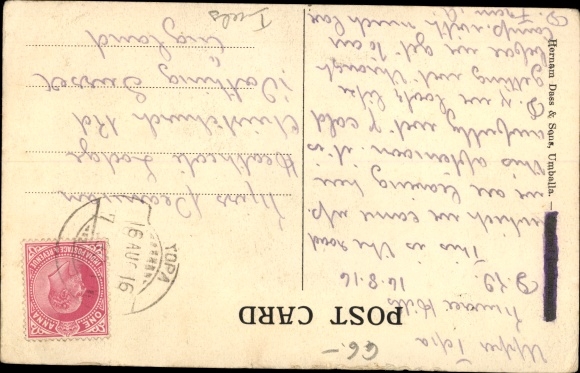 POST CARD
Upper Topa
Murree Hills
16.8.16
This is the road
which we came up.
we are leaving here
this afternoon it is
awfully wet & cold
& we look like
getting wet through
before we get to our
camp. with much love
from
Miss
Heathcote Lodge
Christchurch Rd
Worthing Sussex
England
TOPA
16 AUG 16
INDIA POSTAGE & REVENUE
ONE ANNA
Hernam Dass & Sons, Umballa.